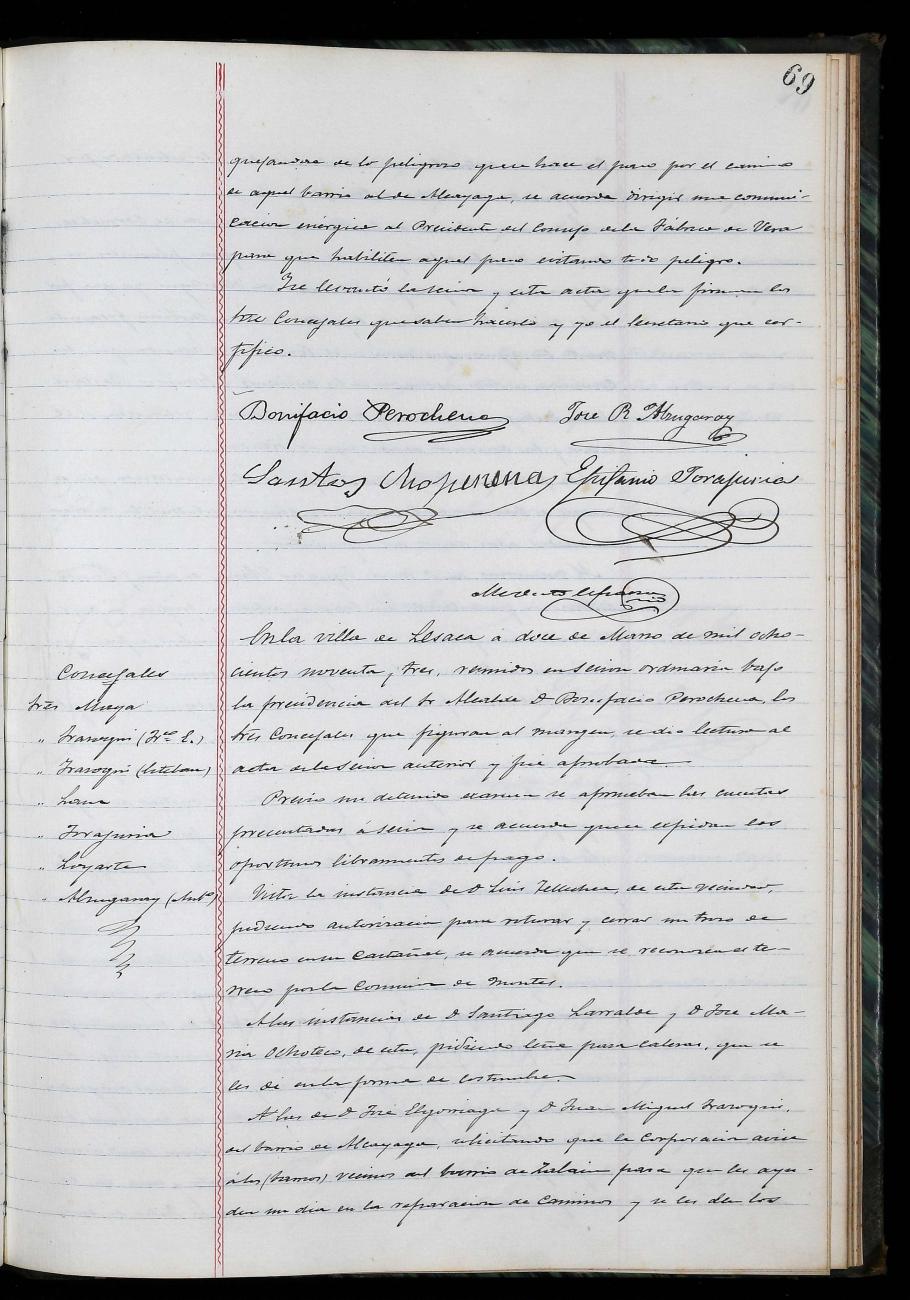 69
quejandose de lo peligroso que se hace el paso por el camino
de aquel barrio al de Alcayaga, se acuerda dirigir una comuni-
cacion enérgica al Presidente del Consejo de la Fábrica de Vera
para que habiliten aquel paso evitando todo peligro.
Se levantó la sesion y esta acta que la firman los
Sres Concejales que saben hacerlo y yo el Secretario que cer-
tifico.
Bonifacio Perochena Jose R. Alzugaray
Santos Epifanio Torajuria
En la villa de Lesaca a doce de Marzo de mil ocho-
cientos noventa y tres, reunidos en sesion ordinaria bajo
la presidencia del Sr Alcalde D Bonifacio Perochena, los
Sres Concejales que figuran al margen, se dio lectura al
acta de la sesion anterior y fué aprobada.
Concejales
Sres Maya
" Irazoqui (Frco E.)
" Irazoqui (Esteban)
"
" Torajuria
" Loyarte
" Alzugaray (Anto)
Previo un detenido examen se aprueban las cuentas
presentadas á sesion y se acuerda que se espidan los
oportunos libramientos de pago.
Vista la instancia de D Luis Tellechea, de esta vecindad,
pidiendo autorizacion para roturar y cerrar un trozo de
terreno en su Castañal, se acuerda que se reconozca el te-
rreno por la Comision de Montes.
A las instancias de D Santiago Larralde y D Jose Ma-
ria Ochoteco, de esta, pidiendo leña para caleras, que se
les dé en la forma de costumbre.
A las de D José Elgorriaga y D Juan Miguel Irazoqui,
del barrio de Alcayaga, solicitando que la Corporacion avise
á los (barrios) vecinos del barrio de Zalain para que les ayu-
den un dia en la reparacion de Caminos y se les den los